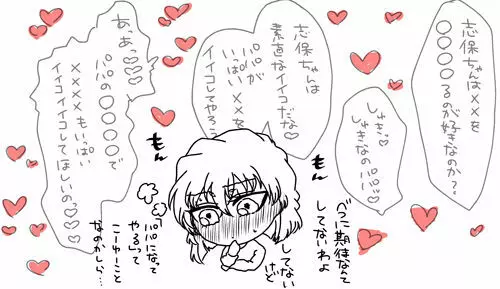 志保ちゃんは××を
○○○○るのが好きなのか?
しゅき♡
しゅきなのパパ♡♡
志保ちゃんは
素直なイイコだな♡
パパが
いっぱい××を
イイコしてやろう
あっあっ♡♡
パパの○○○○で
××××もいっぱい
イイコイイコしてほしいのっ♡♡♡
もん
もん
べつに期待なんて
してないわよ
してない
けど
「パパになって
やる」って
こーゆーこと
なのかしら…